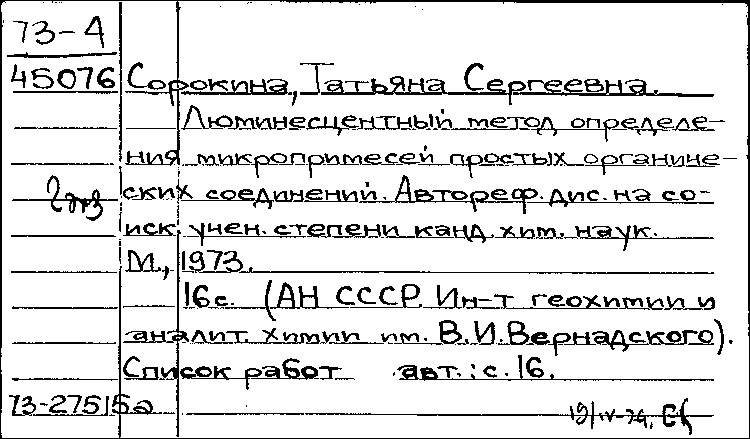 73-4
45076 Сорокина, Татьяна Сергеевна.
Люминесцентный метод определе-
ния микропримесей простых органиче-
2 экз ских соединений. Автореф. дис. на со-
иск. учен. степени канд. хим. наук.
М., 1973.
16с. (АН СССР. Ин-т геохимии и
аналит. химии им. В.И.Вернадского).
Список работ авт.: с. 16.
73-27515а